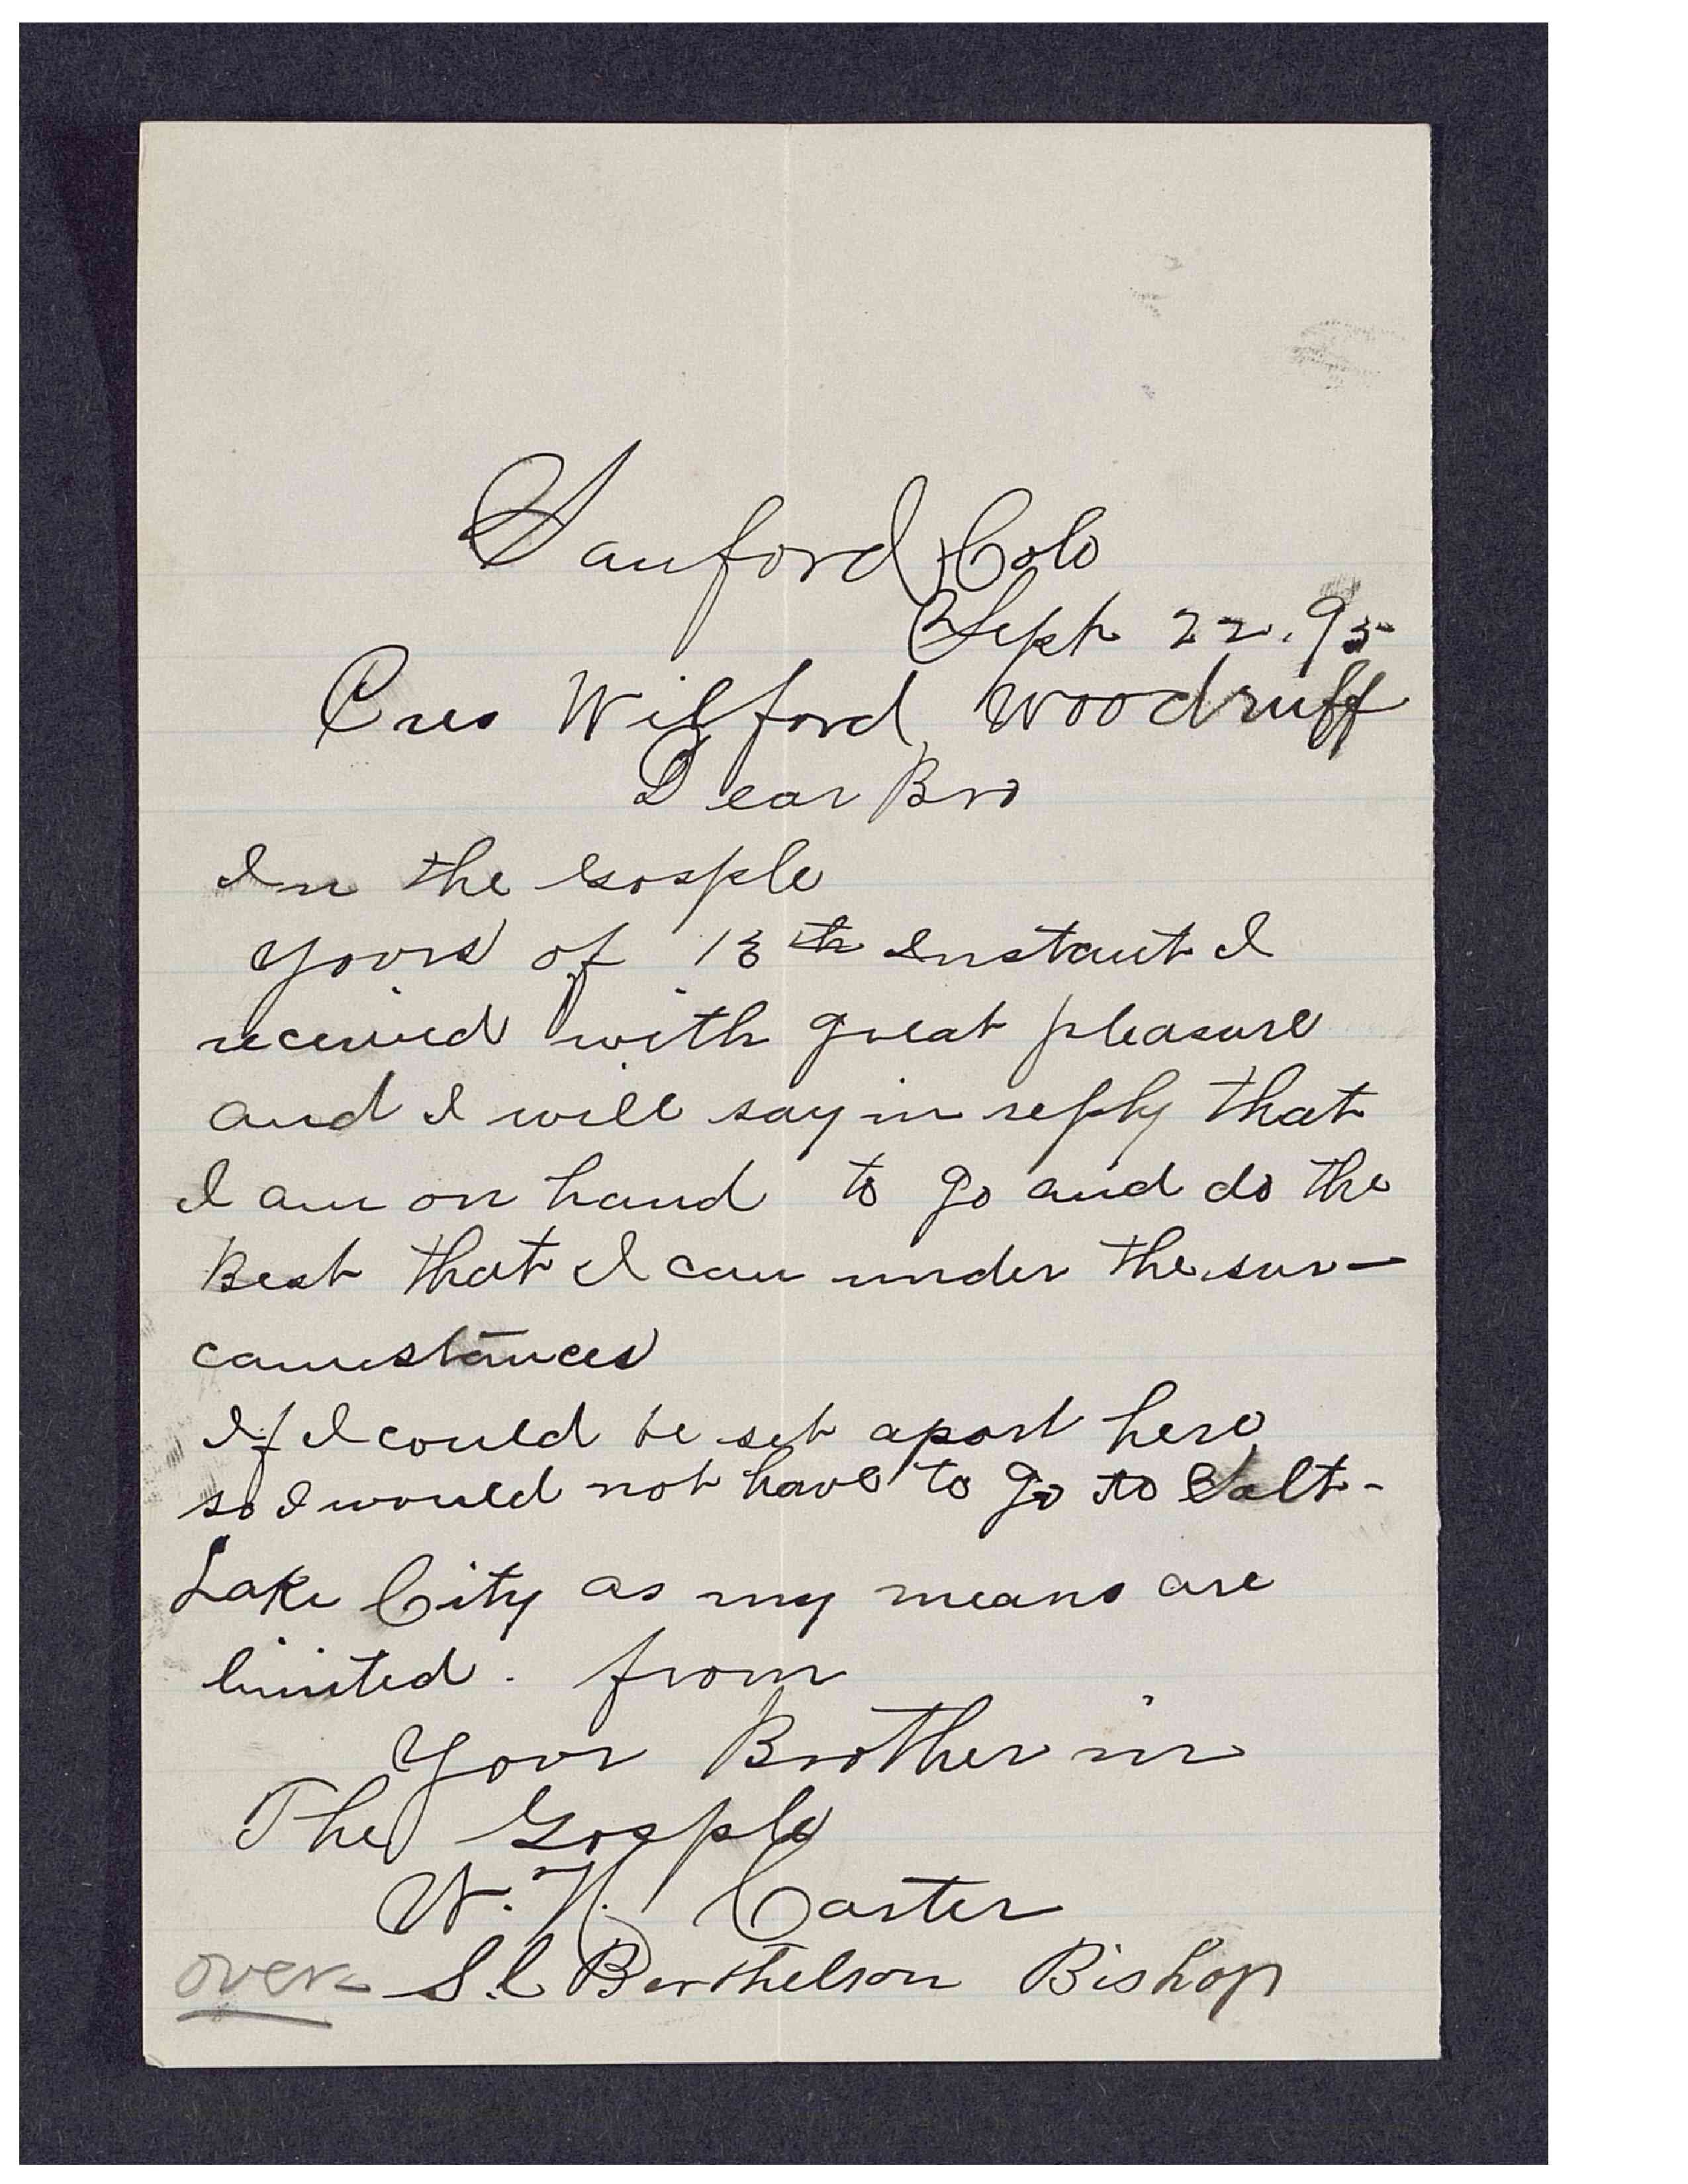 Sanford Colo
Sept 22. 95
Pres Wilford Woodruff
Dear Bro
In the Gosple
Yoors of 13th Instant I
received with great pleasure
and I will say in reply that
I am on hand to go and do the
Best that I can under the sur-
camstances
If I could be set apart here
so I would not have to go to Salt-
Lake City as my means are
limited. from
Yoor Brother in
The Gosple
W. H. Carter
over S. C Berthelson Bishop